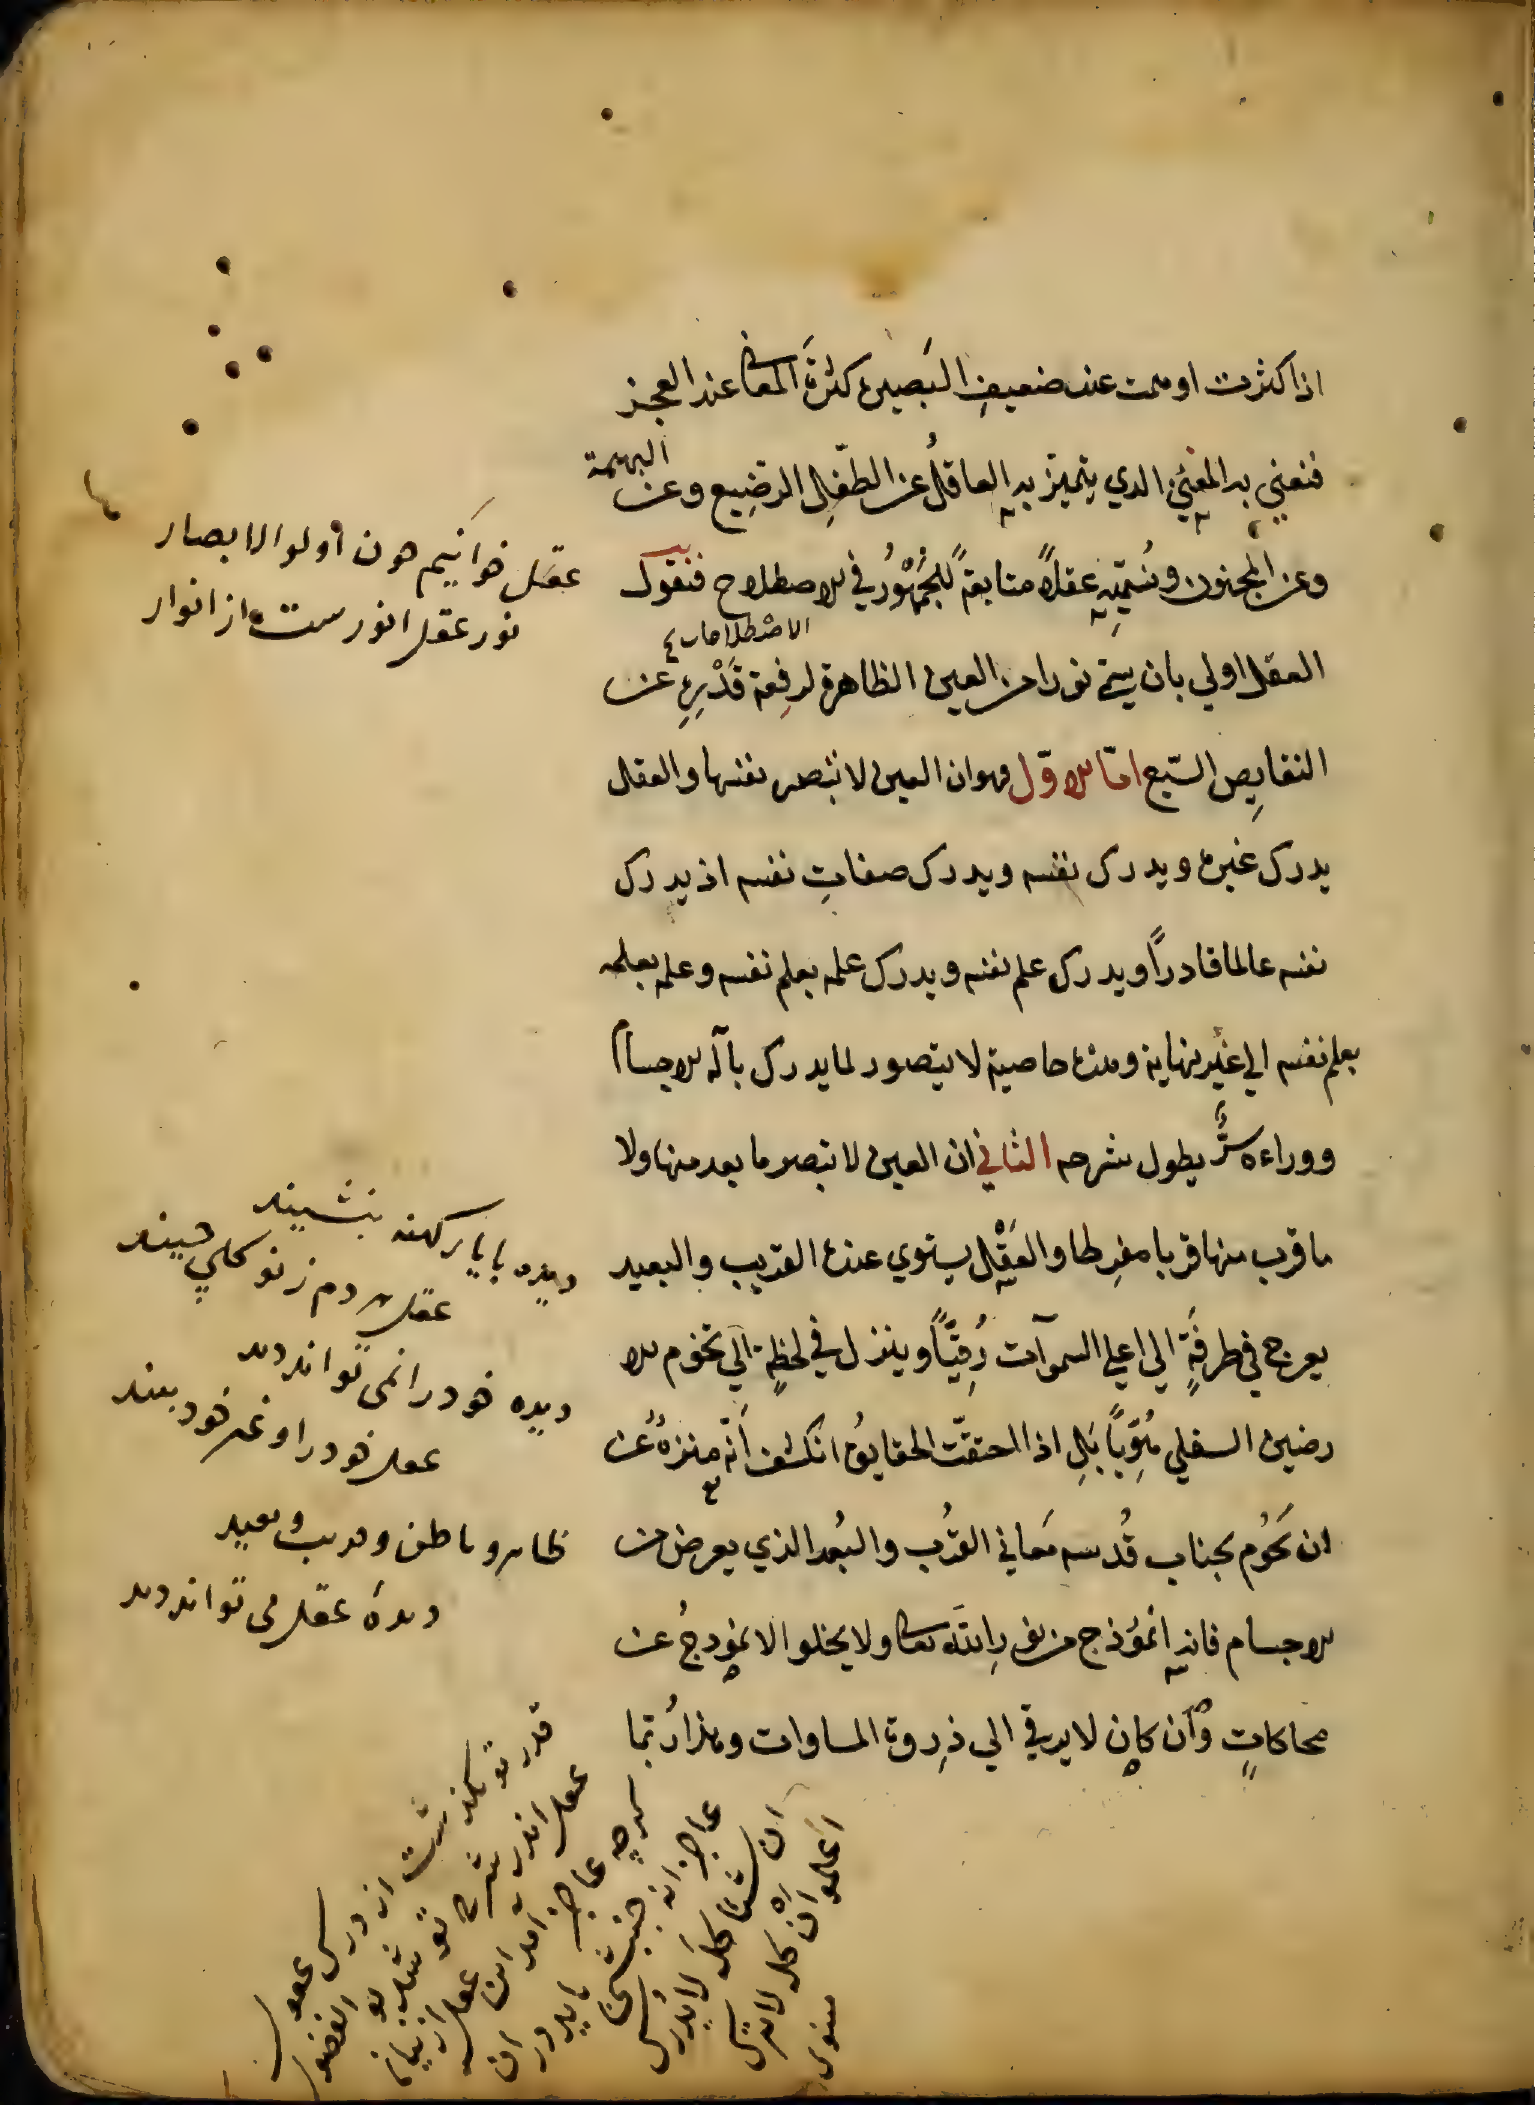 اذا كثرت اوهمت عند ضعيف البصيرة كثرة المعاني عند العجز
فنعني به المعني الذي يتميز به العاقل عن الطفل الرضيع وعن البهيمة
وعن المجنون ونسميه عقلاً متابعةً للجمهور في الاصطلاح فنقول
الاصطلاحات
العقل اولي بان يسمي نورا من العين الظاهرة لرفعة قدره عن
النقايص السبع اما الاول فهو ان العين لا تبصر نفسها والعقل
يدرك غيره ويدرك نفسه ويدرك صفات نفسه اذ يدرك
نفسه عالما قادراً ويدرك علم نفسه ويدرك علمه بعلم نفسه وعلمه بعلمه
بعلم نفسه الي غير نهاية وهذه خاصية لا يتصور لما يدرك بآلة الاجسام
ووراءه سرٌّ يطول شرحه الثاني ان العين لا تبصر ما بعد منها ولا
ما قرب منها قربا مفرطا والعقل يستوي عنده القريب والبعيد
يعرج في طرفةٍ الي اعلي السموآت رُقيّاً وينزل في لحظةٍ الي تخوم الا
رضين السفلي هُوِيّاً بل اذا احتقت الحقايق انكشف أنه منزهٌ عن
ان تحوم بجناب قُدسه معاني القرب والبعد الذي يعرض من
الاجسام فانه انموذج من نور الله تعالى ولا يخلو الانموذج عن
محاكاتٍ وان كان لا يرقي الي ذروة المساوات وهذا ربما
عقل خوانيم هون اولو الابصار
نور عقل انورست از انوار
ديده با يار كهنه بنشيند
عقل هر دم ز نو كلي چيند
ديده خود را نمی تواند دید
عقل خود را و غير خود بيند
ظاهر و باطن و قريب و بعيد
ديدهٔ عقل می تواند ديد
قدر تو بگذشت از درك عقول
عقل اندر شرح تو شد بو الفضول
گرچه عاجز آمد اين عقل از بيان
عاجزانه جنبشی بايد در ان
ان شيئا كله لا يدرك
اعلموا ان كله لا يترك
مثنوی